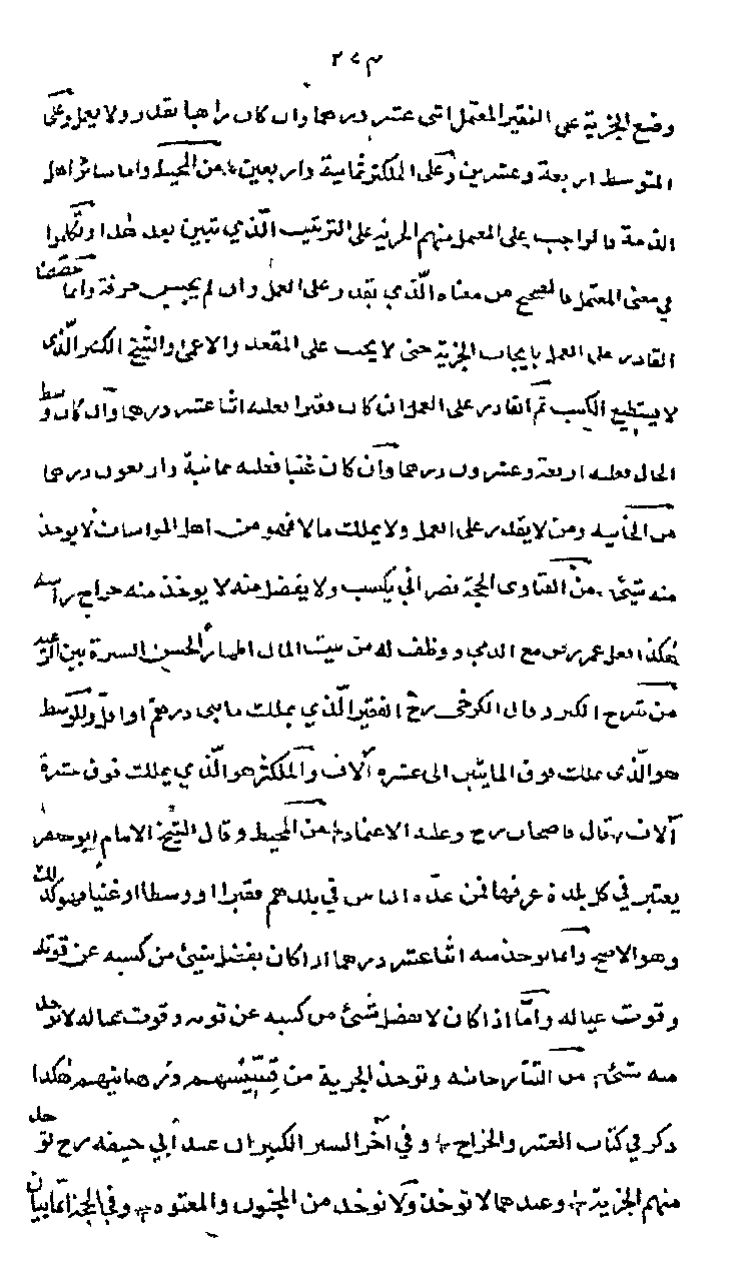 ٢٧٣
وضع الجزية على الفقير المعتمل اثنى عشر درهما وان كان راهبا يقدر ولا يعمل وعلى
المتوسط اربعة وعشرين وعلى المكثر ثمانية واربعين من المحيط واما سائر اهل
الذمة فالواجب على المعتمل منهم الجزية على الترتيب الّذي تبين بعد هذا وتكلموا
في معنى المعتمل فالصحيح من معناه الّذي يقدر على العمل وان لم يحسن حرفة وانما خصصنا
القادر على العمل بايجاب الجزية حتى لا يجب على المقعد والاعمى والشيخ الكبير الّذى
لا يستطيع الكسب ثم القادر على العمل ان كان فقيرا فعليه اثنا عشر درهما وان كان وسط
الحال فعليه اربعة وعشرون درهما وان كان غنيا فعليه ثمانية واربعون درهما
من الخانيه ومن لا يقدر على العمل ولا يملك مالا فهو من اهل المواسات لا يوخذ
منه شيئ من الفتاوى الحجة نصرانى يكسب ولا يفضل منه لا يوخذ منه خراج راسه
هكذا فعل عمر رض مع الذمي ووظف له من بيت المال اظهارا لحسن السيرة بين
من شرح الكبير وقال الكرخى رح الفقير الّذي يملك مايتى درهم او اقل والمتوسط
هو الّذى يملك فوق المايتين الى عشرة آلاف والمكثر هو الّذي يملك فوق عشرة
آلاف قال قاضيخان رح وعليه الاعتماد من المحيط وقال الشيخ الامام ابو جعفر
يعتبر في كل بلدة عرفها فمن عدّه الناس في بلدهم فقيرا او وسطا او غنيا فهو كذلك
وهو الاصح وانما يوخذ منه اثنا عشر درهما اذا كان يفضل شيئ من كسبه عن قوته
وقوت عياله وامّا اذا كان لا يفضل شيئ من كسبه عن قوته وقوت عياله لا يوخذ
منه شيئ من التتارخانيه وتوخذ الجزية من قسّيسهم ورهبانيهم هكذا
ذكر في كتاب العشر والخراج وفي آخر السير الكبير ان عند أبي حنيفه رح توخذ
منهم الجزية وعندهما لا توخذ ولا توخذ من المجنون والمعتوه وفي الحجة